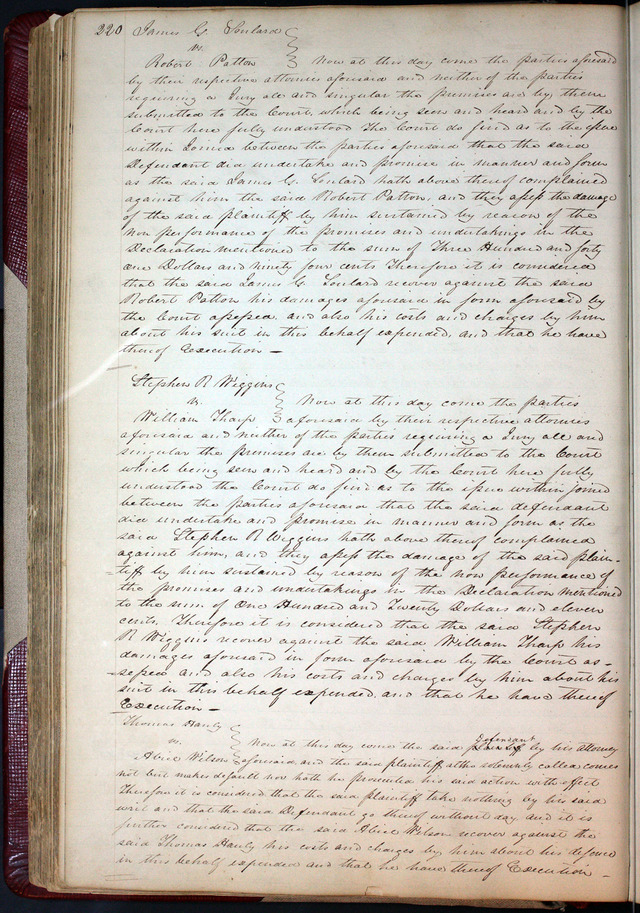 220 James G. Soulard
vs.
Robert Patton } Now at this day come the parties aforesaid
by their respective attornies aforesaid and neither of the parties
requiring a Jury all and singular the premises are by them
submitted to the Court, which being seen and heard and by the
Court here fully understood The Court do find as to the issue
within Joined between the parties aforesaid that the said
Defendant did undertake and promise in manner and form
as the said James G. Soulard hath above thereof complained
against him the said Robert Patton, and they assess the damage
of the said plaintiff by him sustained by reason of the
non performance of the promises and undertakings in the
Declaration mentioned to the sum of Three Hundred and forty
One Dollars and ninety four cents Therefore it is considered
that the said James G. Soulard recover against the said
Robert Patton his damages aforesaid in form aforesaid by
the Court assessed, and also his costs and charges by him
about his suit in this behalf expended, and that he have
thereof Execution —
Stephen R Wiggins
vs. } Now at this day come the parties
William Tharp aforesaid by their respective attornies
aforesaid and neither of the parties requiring a Jury all and
singular the premises are by them submitted to the Court
which being seen and heard and by the Court here fully
understood the Court do find as to the issue within joined
between the parties aforesaid that the said defendant
did undertake and promise in manner and form as the
said Stephen R Wiggins hath above thereof complained
against him, and they assess the damage of the said plain-
-tiff by him sustained by reason of the non performance of
the promises and undertakings in the Declaration mentioned
to the sum of One Hundred and Twenty Dollars and eleven
cents. Therefore it is considered that the said Stephen
R Wiggins recover against the said William Tharp his
damages aforesaid in form aforesaid by the Court as-
-sessed and also his costs and charges by him about his
suit in this behalf expended, and that he have thereof
Execution —
Thomas Hanly
vs. } Now at this day come the said defendant by his attorney
Alice Wilson aforesaid, and the said plaintiff altho solemnly called comes
not but makes default nor hath he prosecuted his said action with effect
Therefore it is considered that the said plaintiff take nothing by his said
writ and that the said Defendant go thereof without day and it is
further considered that the said Alice Wilson recover against the
said Thomas Hanly his costs and charges by him about his defence
in this behalf expended and that he have thereof Execution —